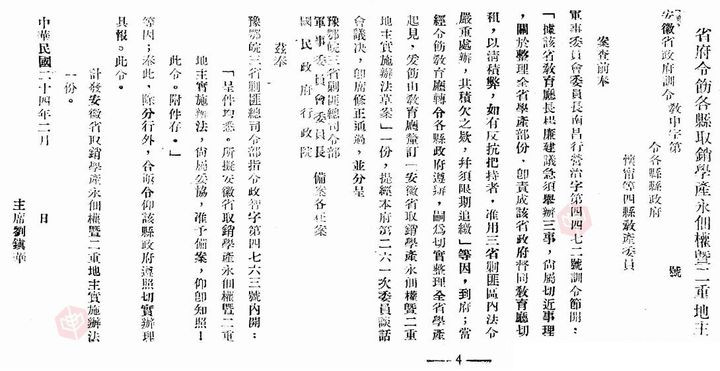 省府令飭各縣取銷學產永佃權暨二重地主
安徽省政府訓令 教中字第 號
令各縣縣政府
懷甯等四縣教產委員
案查前奉
軍事委員會委員長南昌行營治字第四四七二號訓令節開：
「據該省教育廳長楊廉建議急須舉辦三事，尚屬切近事理
，關於整理全省學產部份，卽責成該省政府督同教育廳切
租，以清積弊，如有反抗把持者，准用三省剿匪區內法令
嚴重處辦，其積欠之欵，幷須限期追繳」等因，到府；當
經令飭教育廳轉令各縣政府遵辦，嗣爲切實整理全省學產
起見，爰飭由教育廳釐訂「安徽省取銷學產永佃權暨二重
地主實施辦法草案」一份，提經本府第二六一次委員談話
會議決，卽席修正通過，並分呈
豫鄂皖三省剿匪總司令部
軍事委員會委員長 備案各在案
國民政府行政院
茲奉
豫鄂皖三省剿匪總司令部指令政智字第四七六三號內開：
「呈件均悉。所擬安徽省取銷學產永佃權暨二重
地主實施辦法，尙屬妥協，准予備案，仰卽知照！
此令。附件存。」
等因；奉此，除分行外，合亟令仰該縣政府遵照切實辦理
具報。此令。
計發安徽省取銷學產永佃權暨二重地主實施辦法
一份。
中華民國二十四年二月 日
主席劉鎮華
4